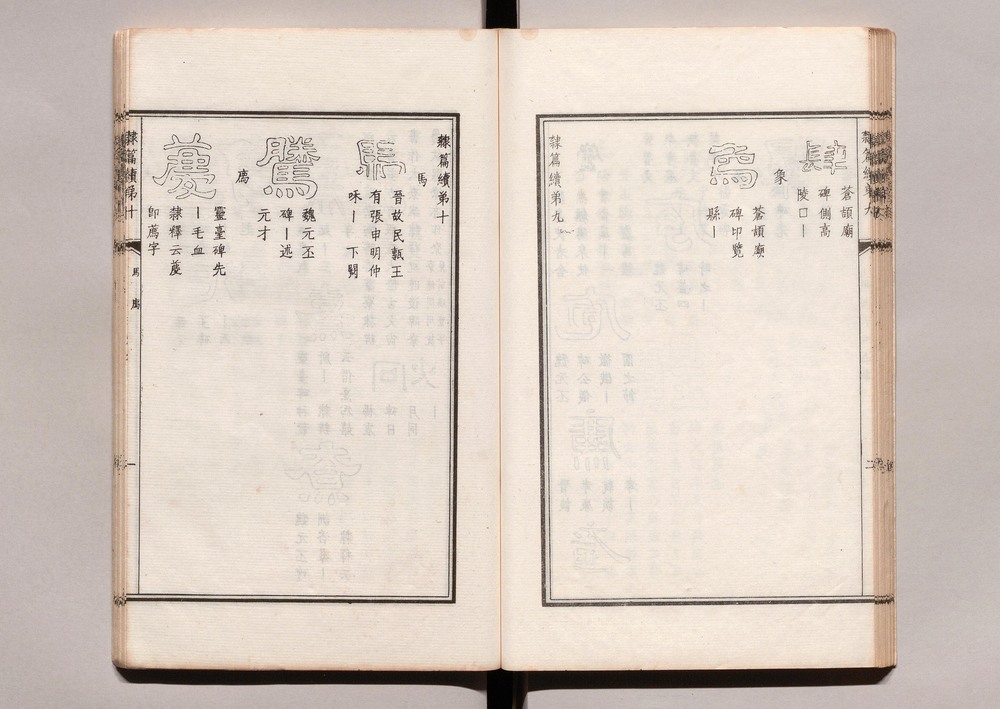 肆
蒼頡廟
碑側高
陵口丨
象
為
蒼頡廟
碑印覽
縣丨
隸篇續第九
隸篇續第十
馬
馬
晉故民甄王
有張申明仲
咊丨下闕
騰
魏元丕
碑丨述
元才
廌
薦
靈臺碑先
丨毛血
隸釋云䕪
卽薦字
隸篇續第十
馬
廌
一